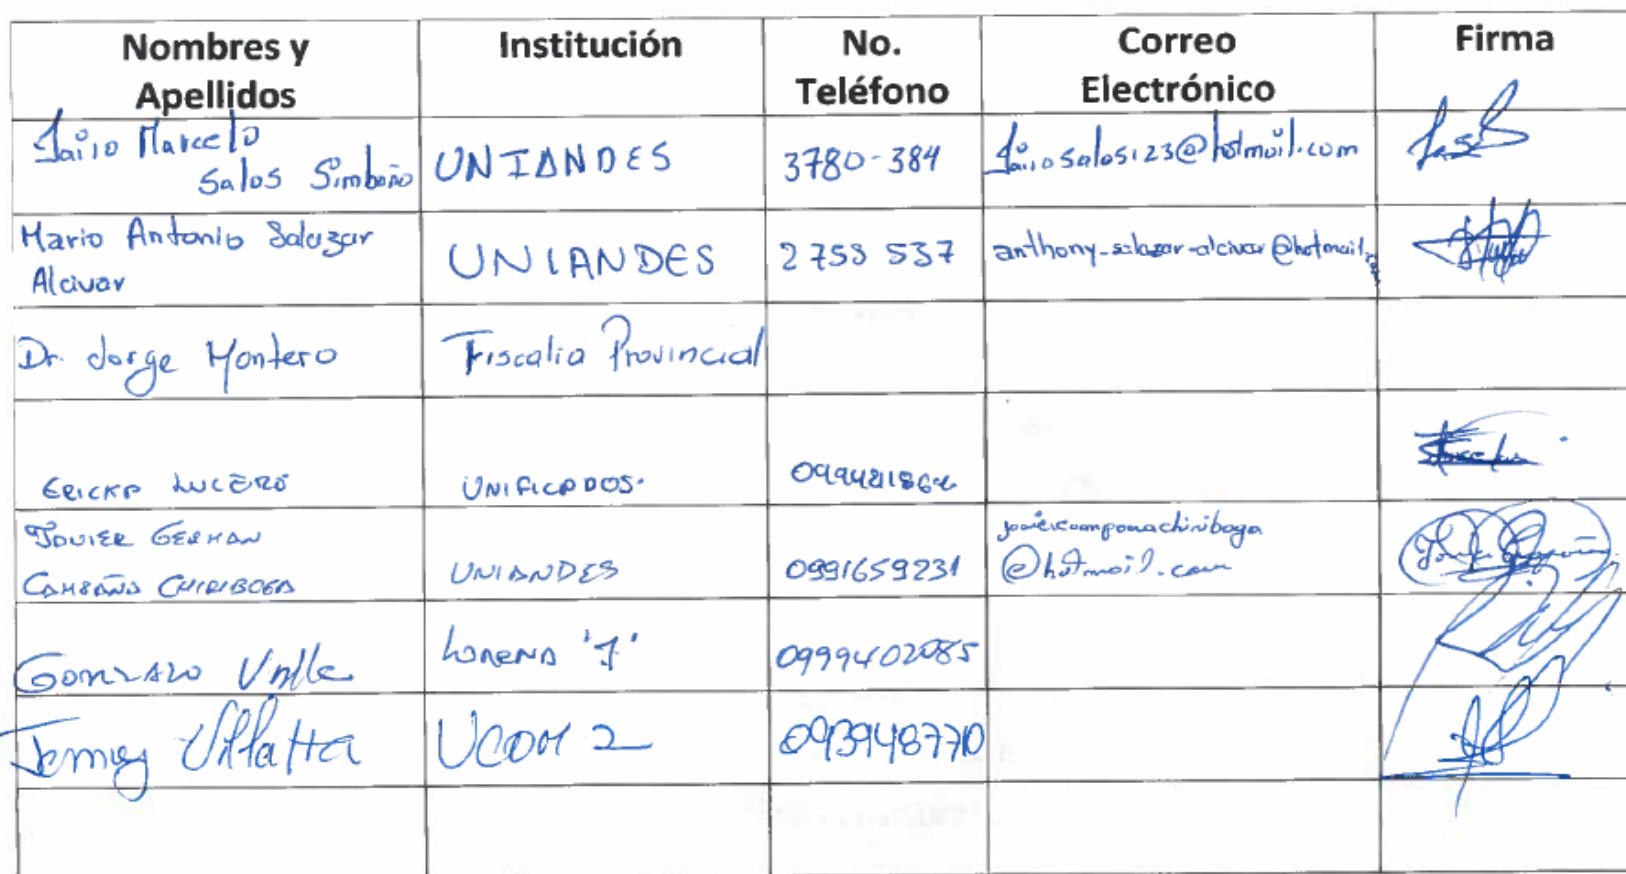 Nombres y Apellidos Institución No. Teléfono Correo Electrónico Firma
Jairo Marcelo
Salos Simboño UNIANDES 3780-384 Jairosalos123@hotmail.com
Mario Antonio Salazar
Alcivar UNIANDES 2753 537 anthony-salazar-alcivar@hotmail.
Dr. Jorge Montero Fiscalia Provincial
ERICKA LUCERO UNIFICADOS.
JAVIER GERMAN
CAMPAÑA CHIRIBOGA UNIANDES 0991659231 javiercampanachiriboga
@hotmail.com
GONZALO Valle LORENA "1" 0999402085
Jenny Villalta UCOM 2 0939487710